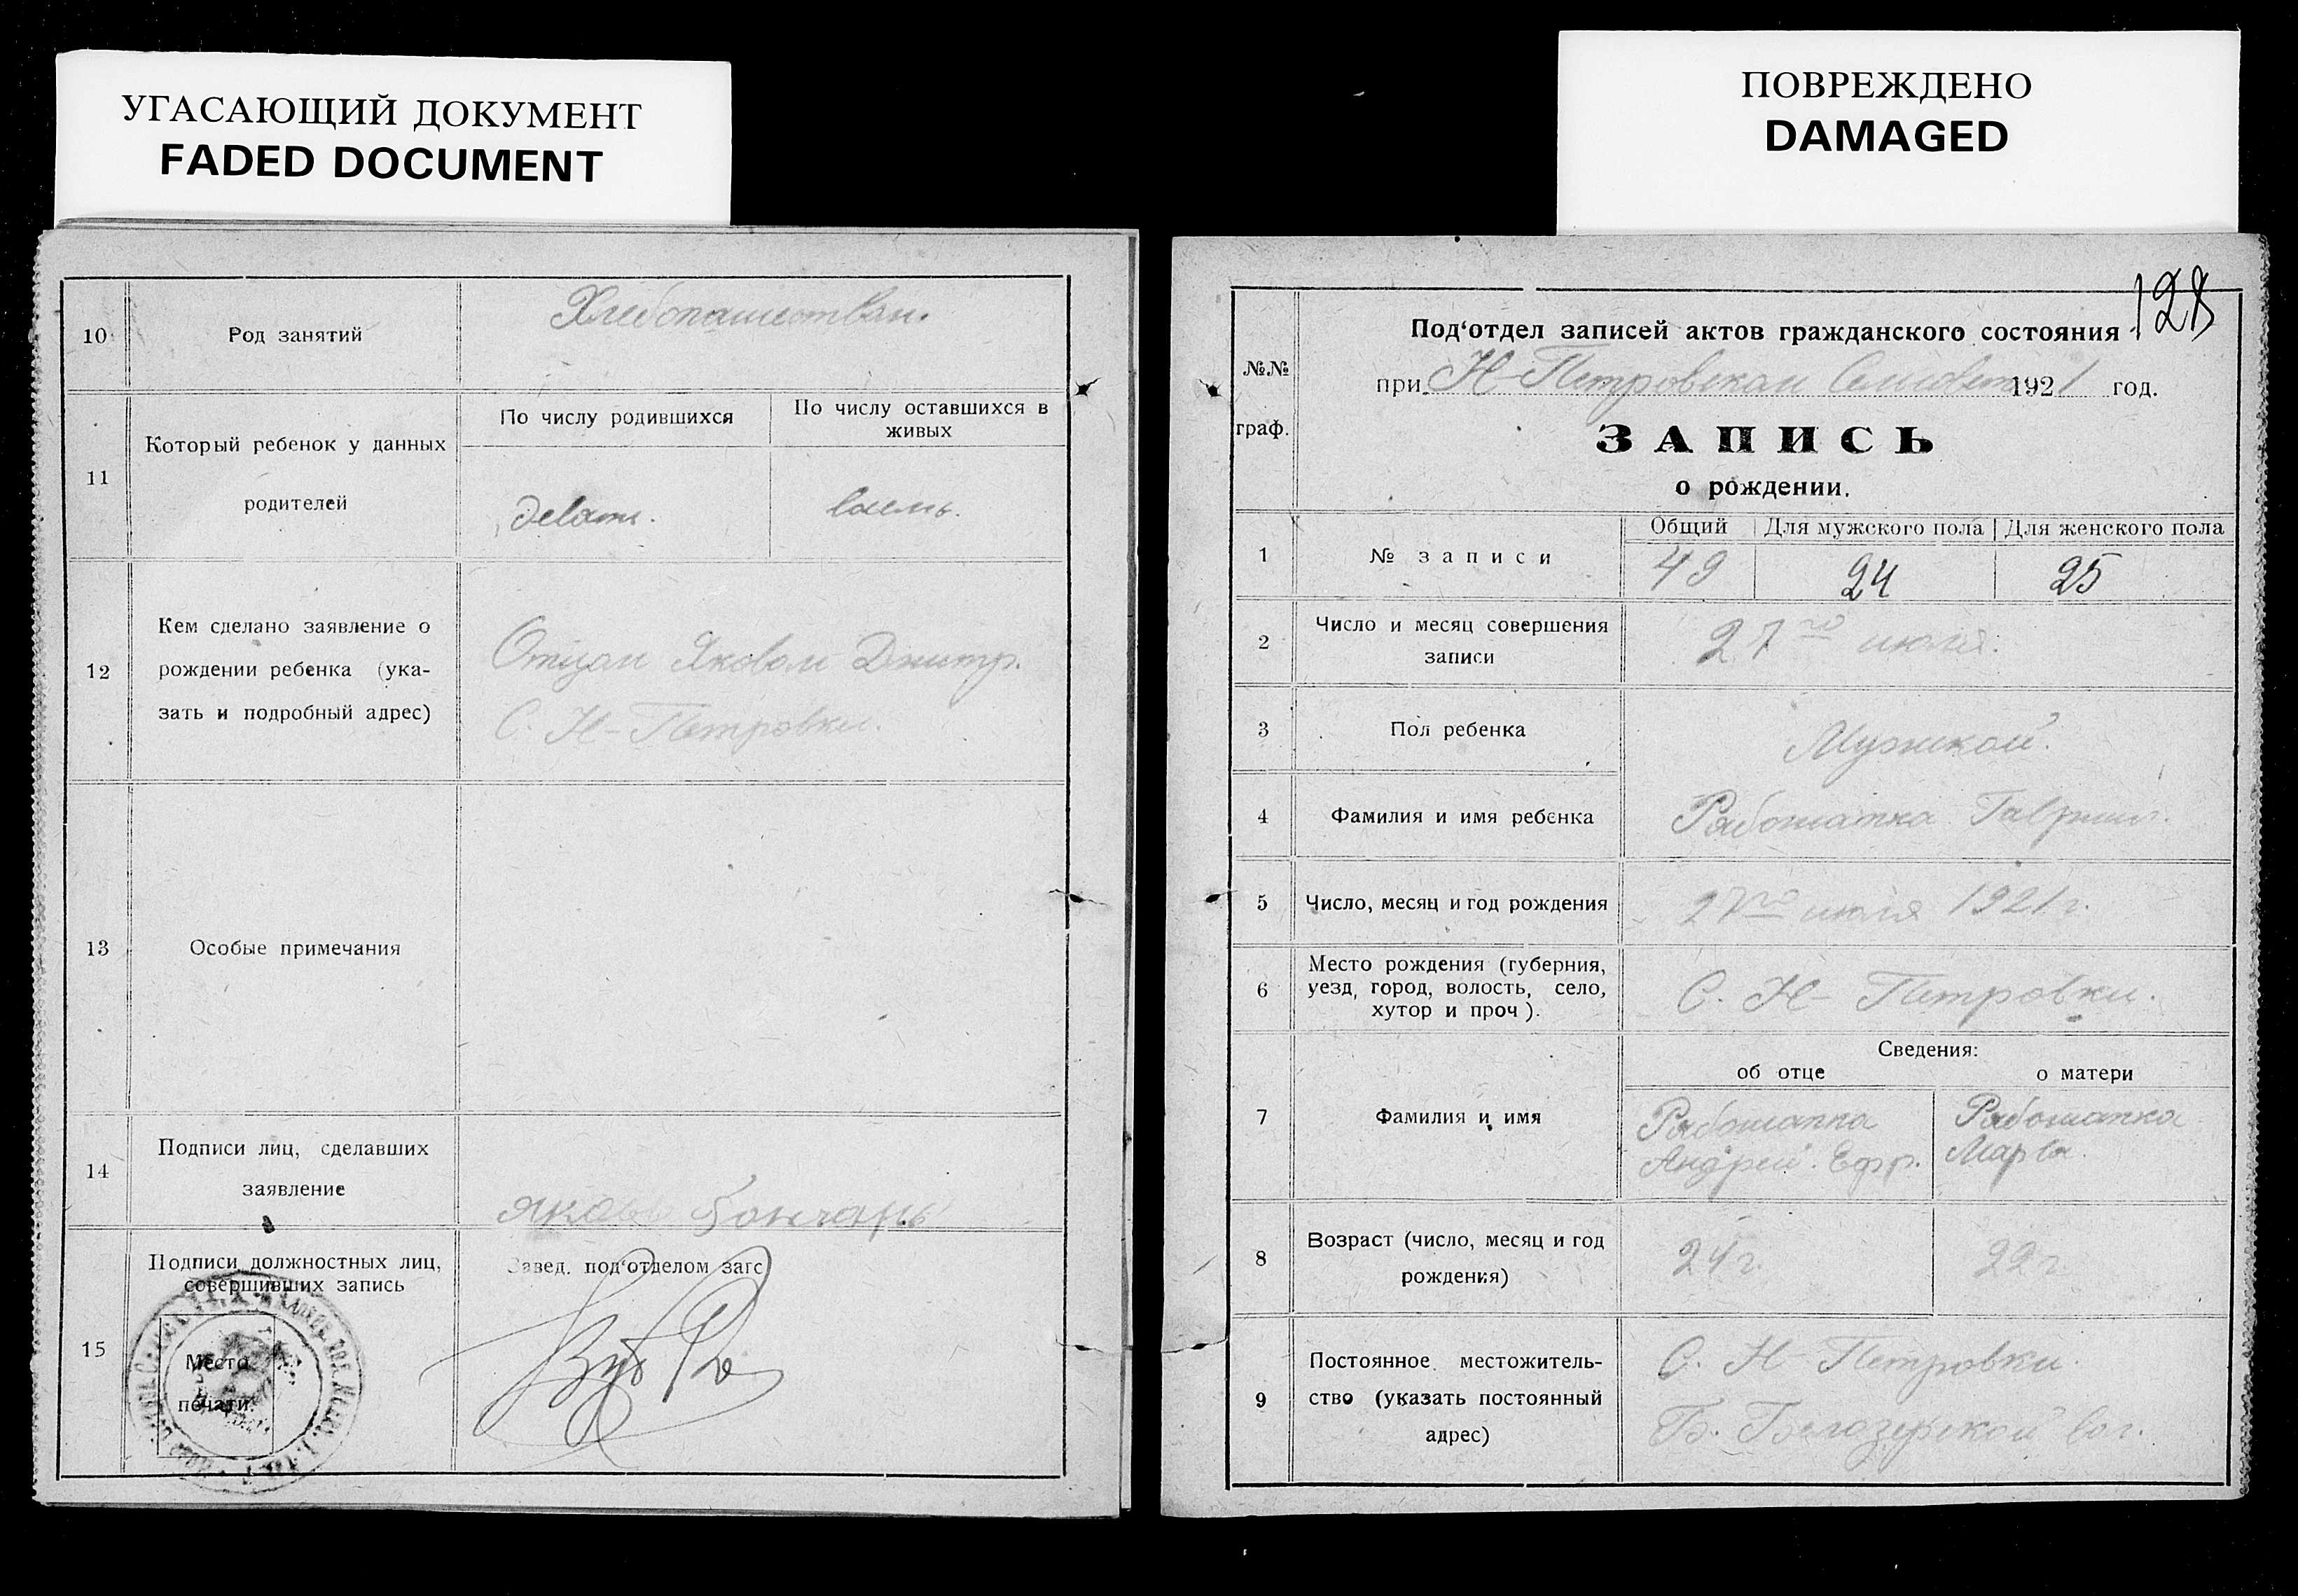 УГАСАЮЩИЙ ДОКУМЕНТ
FADED DOCUMENT
10
Род занятий
Хлебопашествам.
11
Который ребенок у данных
родителей
По числу родившихся
По числу оставшихся в
живых
девять.
восемь.
12
Кем сделано заявление о
рождении ребенка (ука-
зать и подробный адрес)
Отцом Яковом Дмитр.
С. Н-Петровки.
13
Особые примечания
14
Подписи лиц, сделавших
заявление
Яковъ Гончаръ
15
Подписи должностных лиц,
совершивших запись
Место
печати.
Завед. под‘отделом загс
ПОВРЕЖДЕНО
DAMAGED
128
№№
граф.
Под‘отдел записей актов гражданского состояния
при Н-Петровском 1921 год.
ЗАПИСЬ
о рождении.
1
№ записи
Общий
Для мужского пола
Для женского пола
49
24
25
2
Число и месяц совершения
записи
27го июля.
3
Пол ребенка
Мужской.
4
Фамилия и имя ребенка
Рябошапка Гавриил.
5
Число, месяц и год рождения
27го июля 1921 г.
6
Место рождения (губерния,
уезд, город, волость, село,
хутор и проч).
С. Н- Петровки.
Сведения:
об отце
о матери
7
Фамилия и имя
Рябошапка
Андрей Ефр.
Рябошапка
Марва.
8
Возраст (число, месяц и год
рождения)
24 г.
22 г.
9
Постоянное местожитель-
ство (указать постоянный
адрес)
С. Н-Петровки.
Б. Белозерской вол.